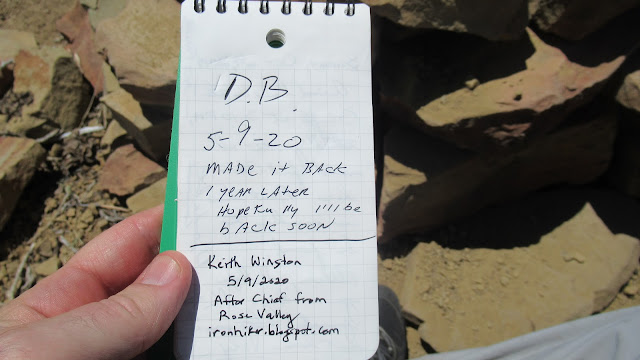 D.B.
5-9-20
MADE it BACK
1 YEAR LATER
Hopefully I'll be
bACK SOON
Keith Winston
5/9/2020
After Chief from
Rose Valley
ironhiker.blogspot.com